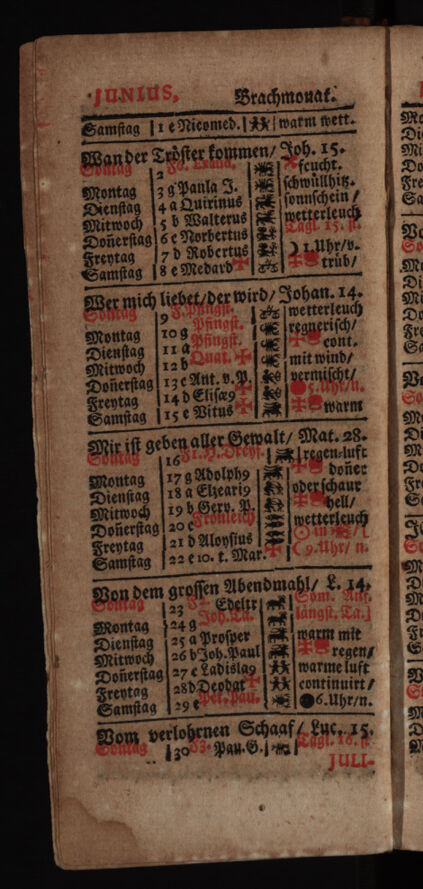 JUNIUS, Brachmonat.
Samstag 1 e Nicomed. warm wett.
Wan der Tröster kommen / Joh. 15.
Sontag 2 feucht.
Montag 3 g Paula J. schwüllhitz.
Dienstag 4 a Quirinus sonnschein /
Mitwoch 5 b Walterus wetterleuch
Doñerstag 6 c Norbertus Tagl. 15. st.
Freytag 7 d Robertus 1. Uhr / v.
Samstag 8 e Medard trüb /
Wer mich liebet / der wird / Johan. 14.
Sontag 9 f. Pfingst. wetterleuch
Montag 10 g Pfingst. regnerisch /
Dienstag 11 a Pfingst. cont.
Mitwoch 12 b Quat. mit wind /
Doñerstag 13 c Ant. v. P. vermischt /
Freytag 14 d Elisæ9 5. Uhr / n.
Samstag 15 e Vitus warm
Mir ist geben aller Gewalt / Mat. 28.
Sontag 16 H. Dreyf. regen-luft
Montag 17 g Adolph9 doñer
Dienstag 18 a Elzeari9 oder schaur
Mitwoch 19 b Gerv. P. hell /
Doñerstag 20 c Fronleich wetterleuch
Freytag 21 d Aloysius in
Samstag 22 e 10. t. Mar. 9. Uhr / n.
Von dem grossen Abendmahl / L. 14.
Sontag 23 Edeltr Som. Anf.
Montag 24 g Joh. Ta. längst. Ta.
Dienstag 25 a Prosper warm mit
Mitwoch 26 b Joh. Paul regen /
Doñerstag 27 c Ladislag warme luft
Freytag 28 d Deodat continuirt /
Samstag 29 e Pet. Pau. 6. Uhr / n.
Vom verlohrnen Schaaf / Luc. 15.
Sontag 30 Pau. G. Tagl. 16. st.
JULI-